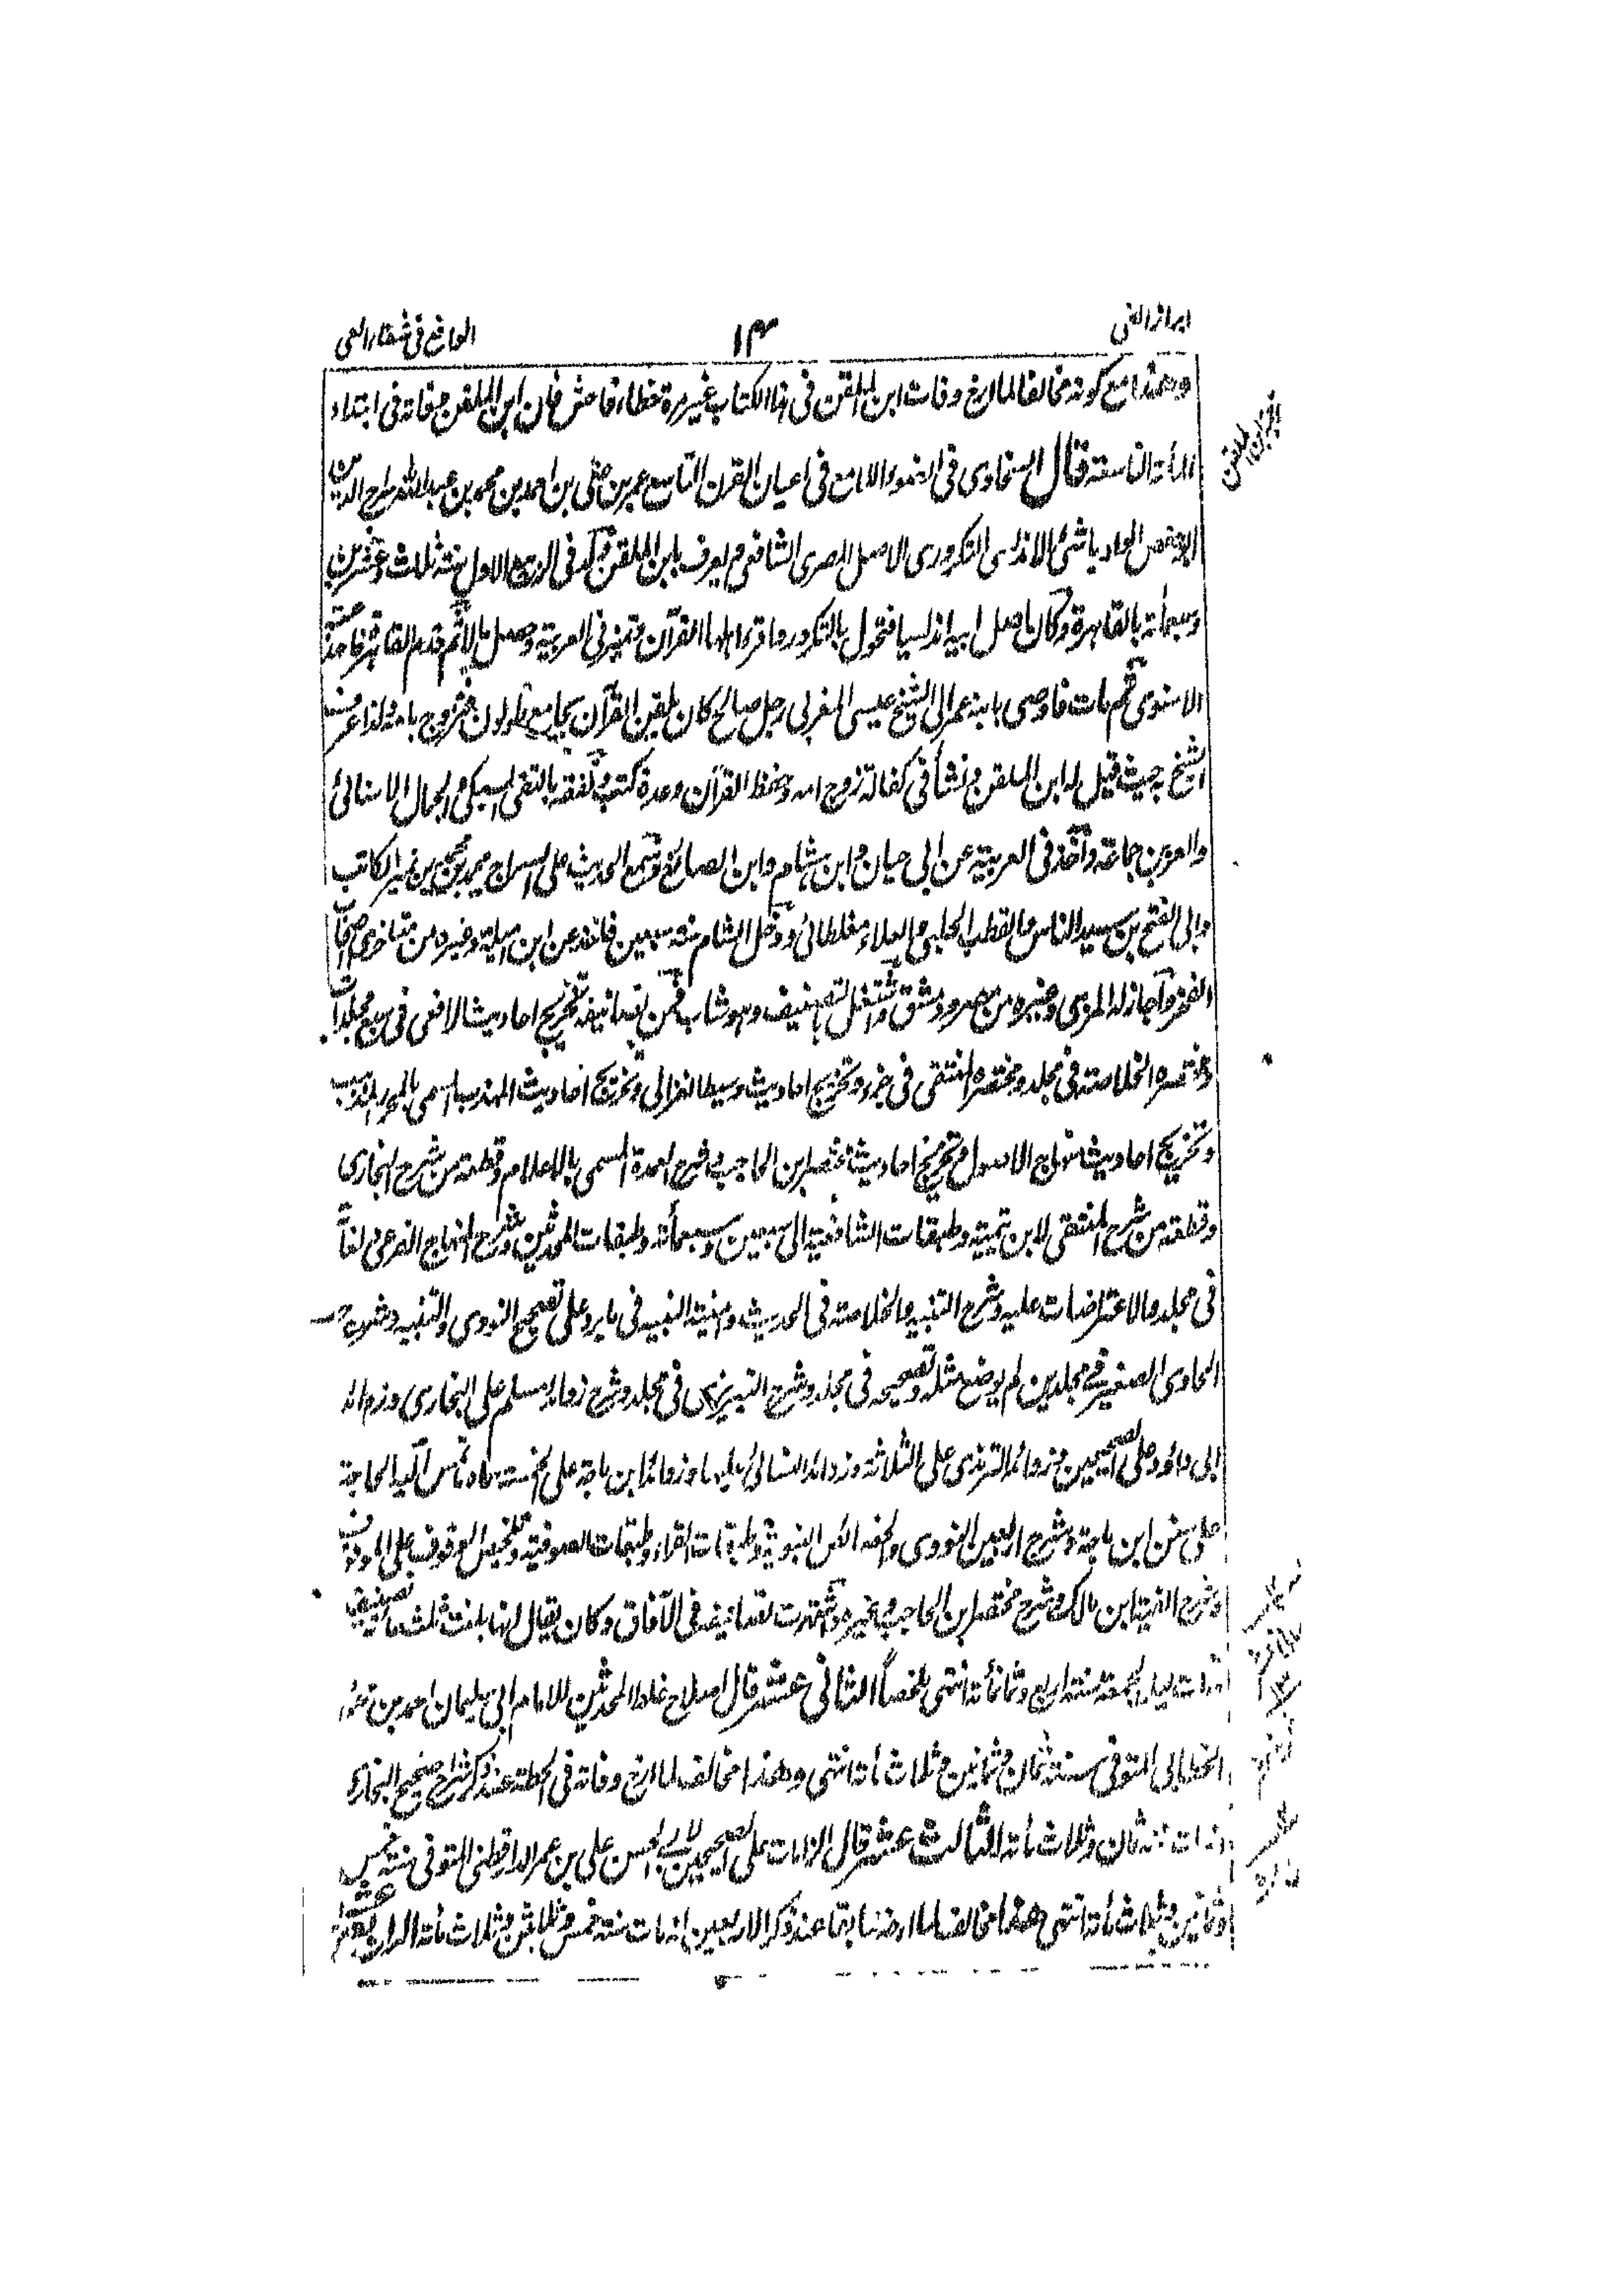 ابراز الغى ۱۴ الواقع فى شفاء العى
وهذا مع كونه مخالفا لما ارخ وفات ابن الملقن فى هذا الكتاب غير مرة خطاء فاحش فان ابن الملقن وفاته فى ابتداء
المأته التاسعة قال السخاوى فى الضوء اللامع فى اعيان القرن التاسع عمر بن على بن احمد بن محمد بن عبد الله سراج الدين
ابو حفص الوادياشى الاندلسى التكرورى الاصل المصرى الشافعى ويعرف بابن الملقن ولد فى الربيع الاول سنة ثلاث وعشرين
وسبعمأته بالقاهرة وكان اصل ابيه اندلسيا فتحول بالتكرور واقرء اهلها القرآن وتميز فى العربية وحصل مالا ثم قدم القاهرة فاخذ عنه
الاسنوى ثم مات فاوصى بابنه عمر الى الشيخ عيسى المغربى رجل صالح كان يلقن القرآن بجامع طولون فتزوج بامه ولذا عرف
الشيخ به حيث قيل له ابن الملقن ونشأ فى كفالة زوج امه وحفظ القرآن وعدة كتب وتفقه بالتقى السبكى والجمال الاسنائى
والعز بن جماعة واخذ فى العربية عن ابى حيان وابن هشام وابن الصائغ وسمع الحديث على السراج محمد بن محمد بن نمير الكاتب
وابى الفتح بن سيد الناس والقطب الحلبى والعلاء مغلطائى ودخل الشام سنة سبعين فاخذ عن ابن اميلة وغيره من متاخرى اصحاب
الفخر واجاز له المزى وغيره من مصر ودمشق واشتغل بالتصنيف وهو شاب فمن تصانيفه تخريج احاديث الرافعى فى سبع مجلدات
ومختصره الخلاصة فى مجلد ومختصره المنتقى فى جزء وتخريج احاديث وسيط الغزالى وتخريج احاديث المهذب المسمى بالمحرر المذهب
وتخريج احاديث منهاج الاصول وتخريج احاديث مختصر ابن الحاجب وشرح العمدة المسمى بالاعلام وقطعة من شرح البخارى
وقطعة من شرح المنتقى لابن تيمية وطبقات الشافعية الى سبعين وسبعمأته وطبقات المحدثين وشرح المنهاج الفرعى لغاته
فى مجلد والاعتراضات عليه وشرح التنبيه والخلاصة فى الحديث وامنية النبيه فى ما يرد على تصحيح النووى والتنبيه وشرح
الحاوى الصغير فى مجلدين لم يوضع مثله وتصحيحه فى مجلد وشرح التبريزى فى مجلد وشرح زوائد مسلم على البخارى وزوائد
ابى داؤد على الصحيحين وزوائد الترمذى على الثلاثة وزوائد النسائى عليها وزوائد ابن ماجة على الخمسة سماه ما تمس اليه الحاجة
على سنن ابن ماجة وشرح اربعين النووى وطبقات القراء وطبقات الصوفية وتلخيص الوقوف على الموقوف
وشرح الفية ابن مالك وشرح مختصر ابن الحاجب وغيره واشتهرت تصانيفه فى الآفاق وكان يقال انها بلغت ثلث مأته تصنيف
مات ليلة الجمعة سنة اربع وثمانمأته انتهى ملخصاً الثانى عشر قال اصلاح غلط المحدثين للامام ابى سليمان احمد بن محمد
الخطابى المتوفى سنة ثمان وثمانين وثلاث مأته انتهى وهذا مخالف لما ارخ وفاته فى الحطة عند ذكر شراح صحيح البخارى
مات سنة ثمان وثلاث مأته الثالث عشر قال الزامات على الصحيحين لابى الحسن على بن عمر الدارقطنى المتوفى سنة خمس
وثمانين وثلاث مأته انتهى وهذا مخالف لما ارخه سابقا عند ذكر الاربعين انه مات سنة خمس وثلاثين وثلاث مأته الرابع عشر